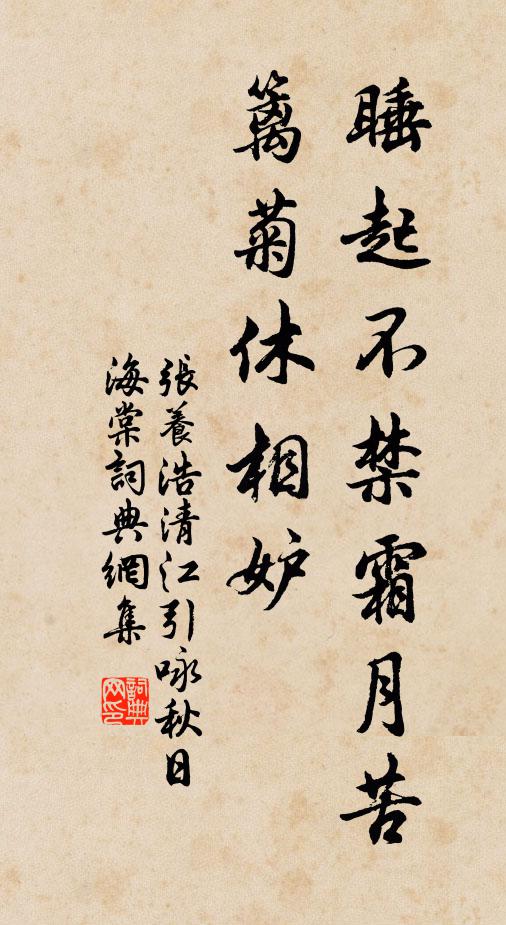 睡起不禁霜月苦
篱菊休相妒
張養浩清江引咏秋日
海棠詞典網集
詞典
网印